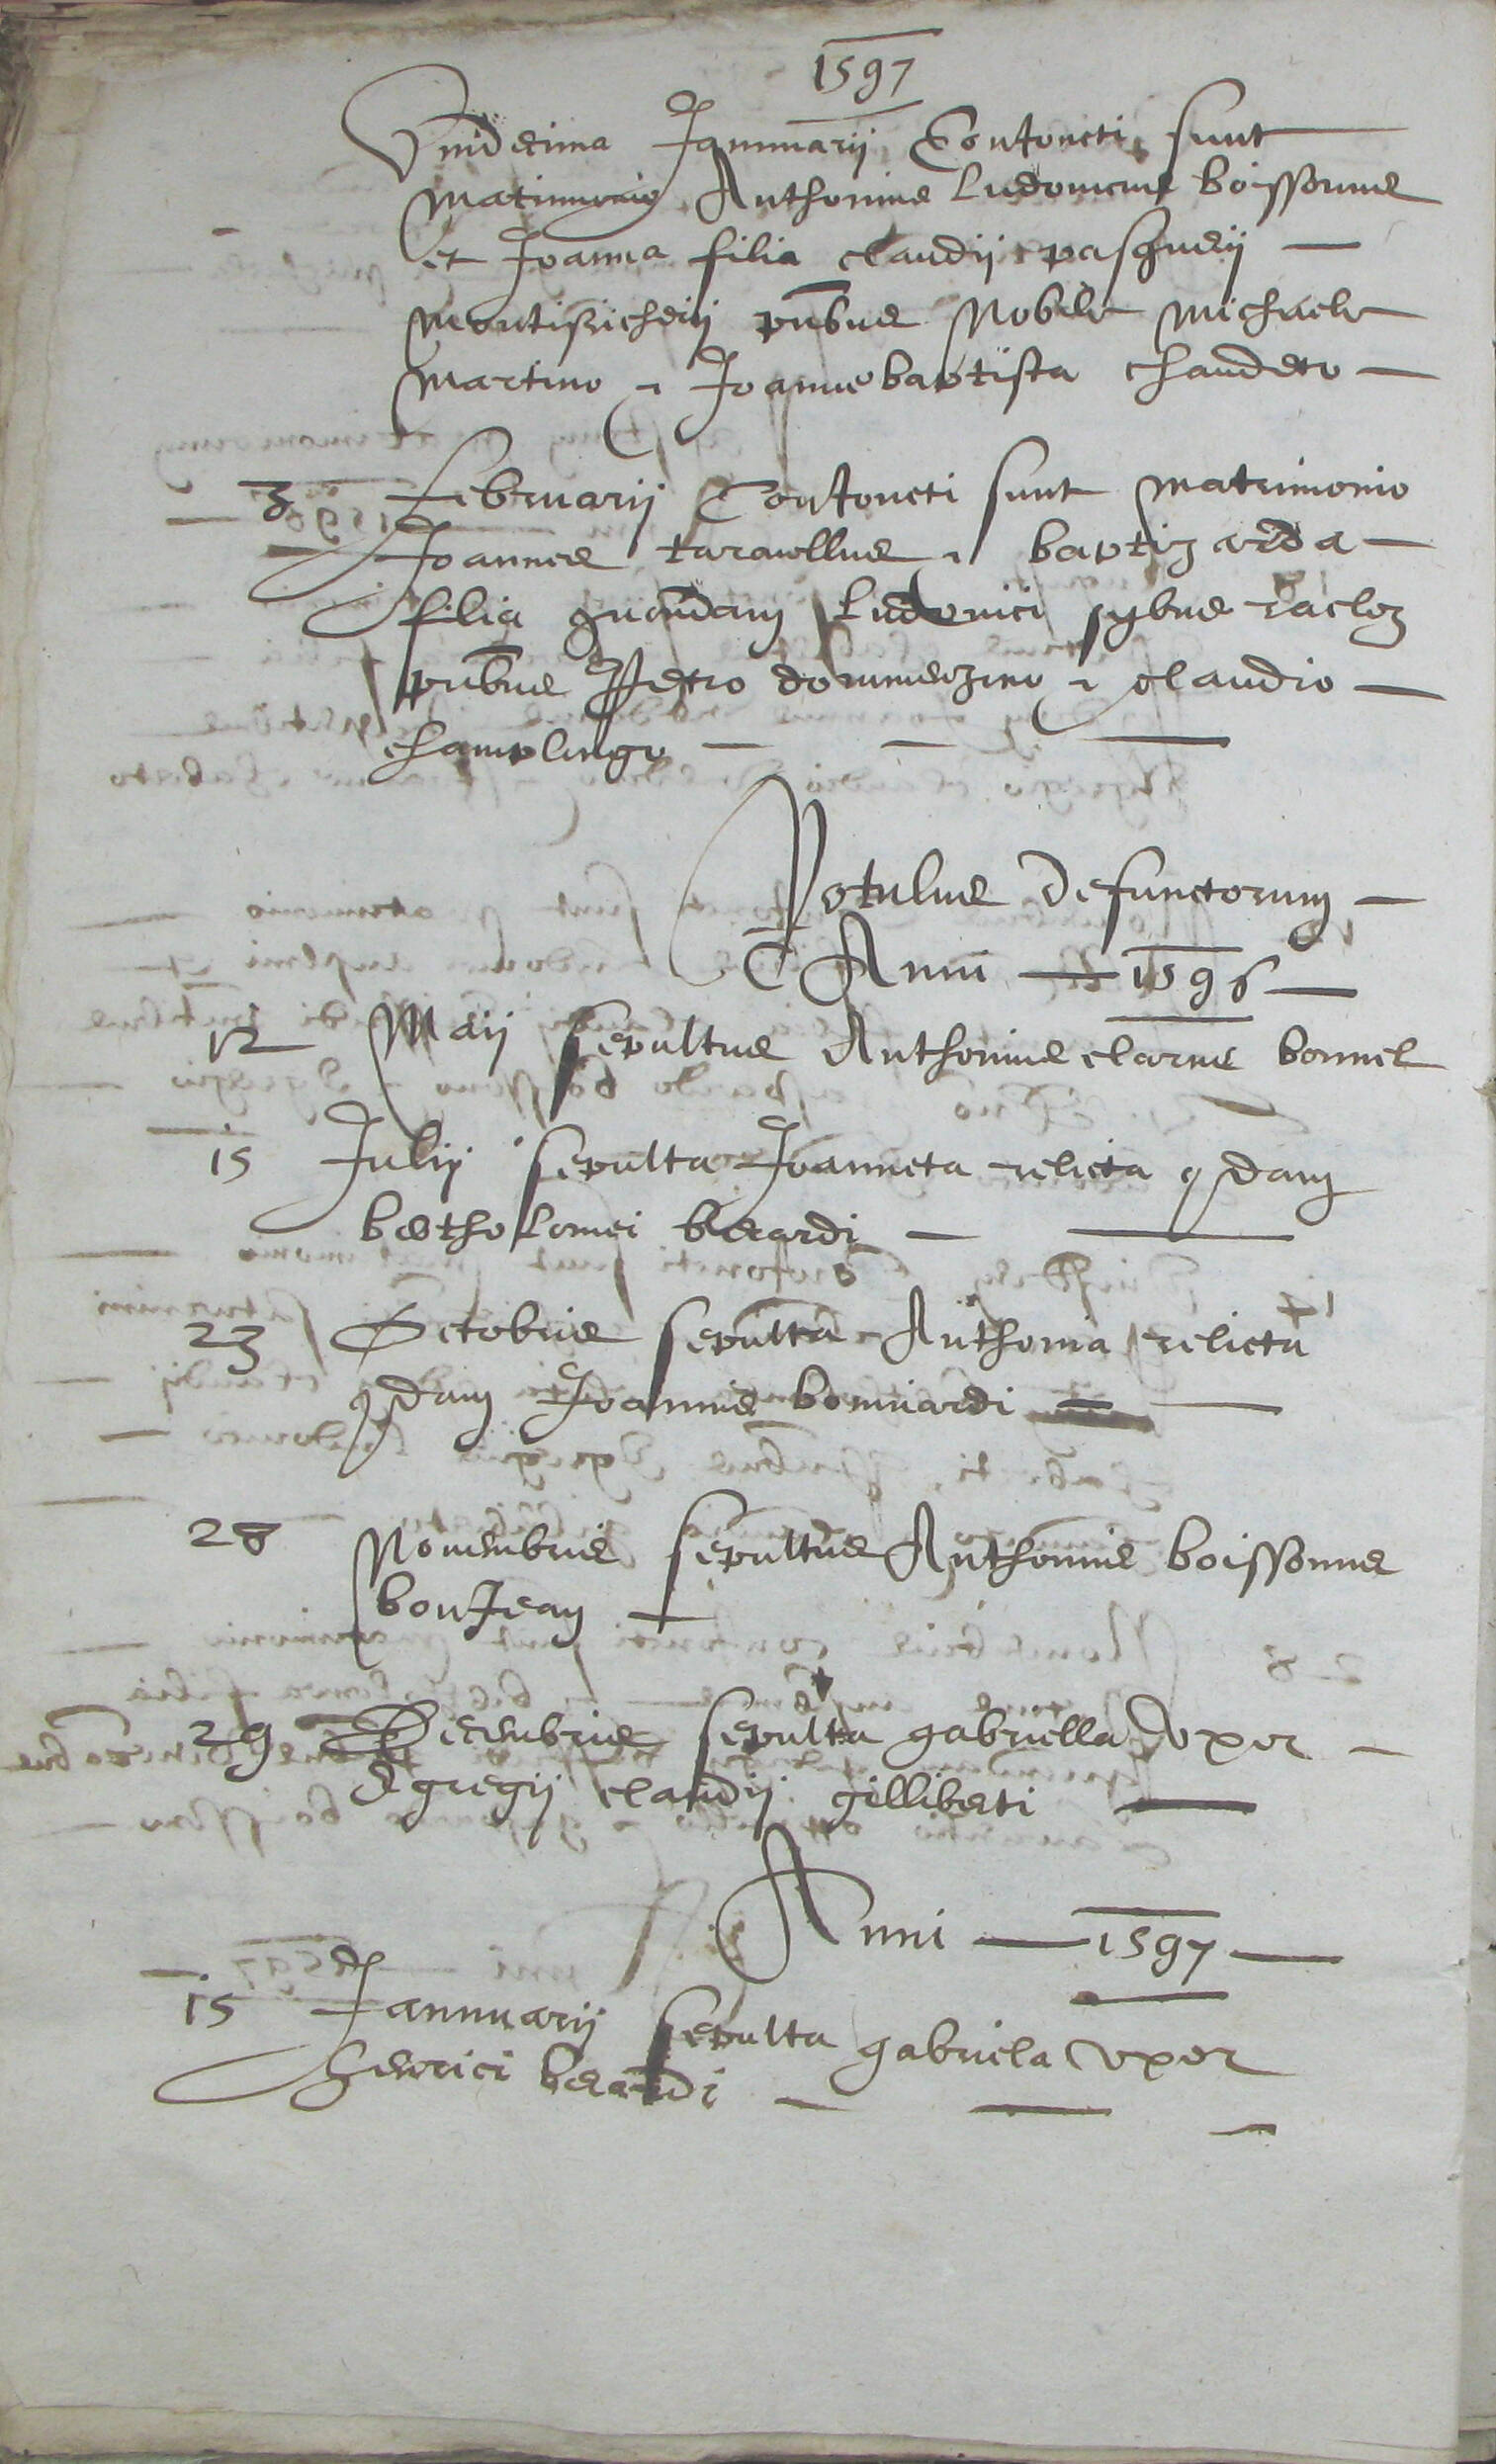 1597
Vndecima Januuarij Coniuncti sunt
Matrimonio Anthonius Ludouicus boissonus
et Joanna filia claudij pasquerij
Montisricherij pntbus Nobile Michaele
Martino et Joannebaptista chaudeto
3 Februarij Coniuncti sunt Matrimonio
Joannes tarauellus et baptizarda
filia quondam Ludouici racloz
pntbus Petro et claudio
champlingo
Rotulus Defunctorum
Anni 1596
12 Maij sepultus Anthonius clarus bonnel
15 Julij sepulta Joanneta relicta qdam
bertholomei berardi
23 Octobris sepulta Anthonia relicta
qdam Joannis bonuiardi
28 Nouembris sepultus Anthonius boissonus
bonJean
29 Decembris sepulta gabriella vxor
Egregij claudij gilliberti
Anni 1597
15 Januuarij sepulta gabriela vxor
henrici berardi